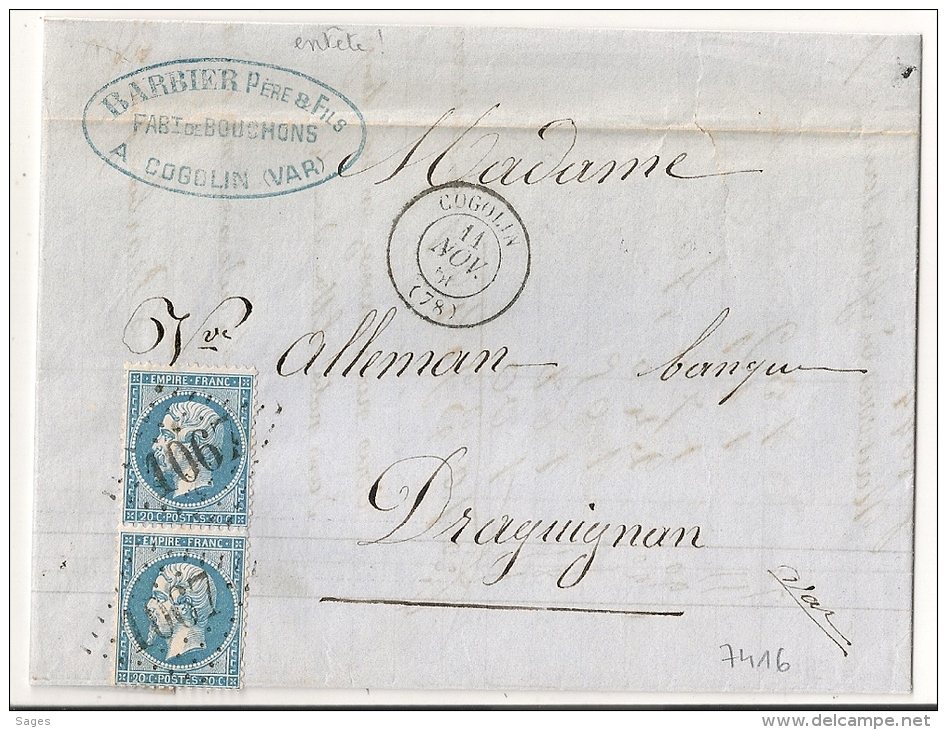 entete !
BARBIER PÈRE & FILS
FABT DE BOUCHONS
A COGOLIN (VAR)
Madame
COGOLIN
11
NOV.
(78)
Vve Alleman banque
EMPIRE · FRANC ·
1067
20 C · POSTES · 20 C
Draguignan
EMPIRE · FRANC ·
1067
20 C · POSTES · 20 C
Var
7416
Sages
delcampe.net